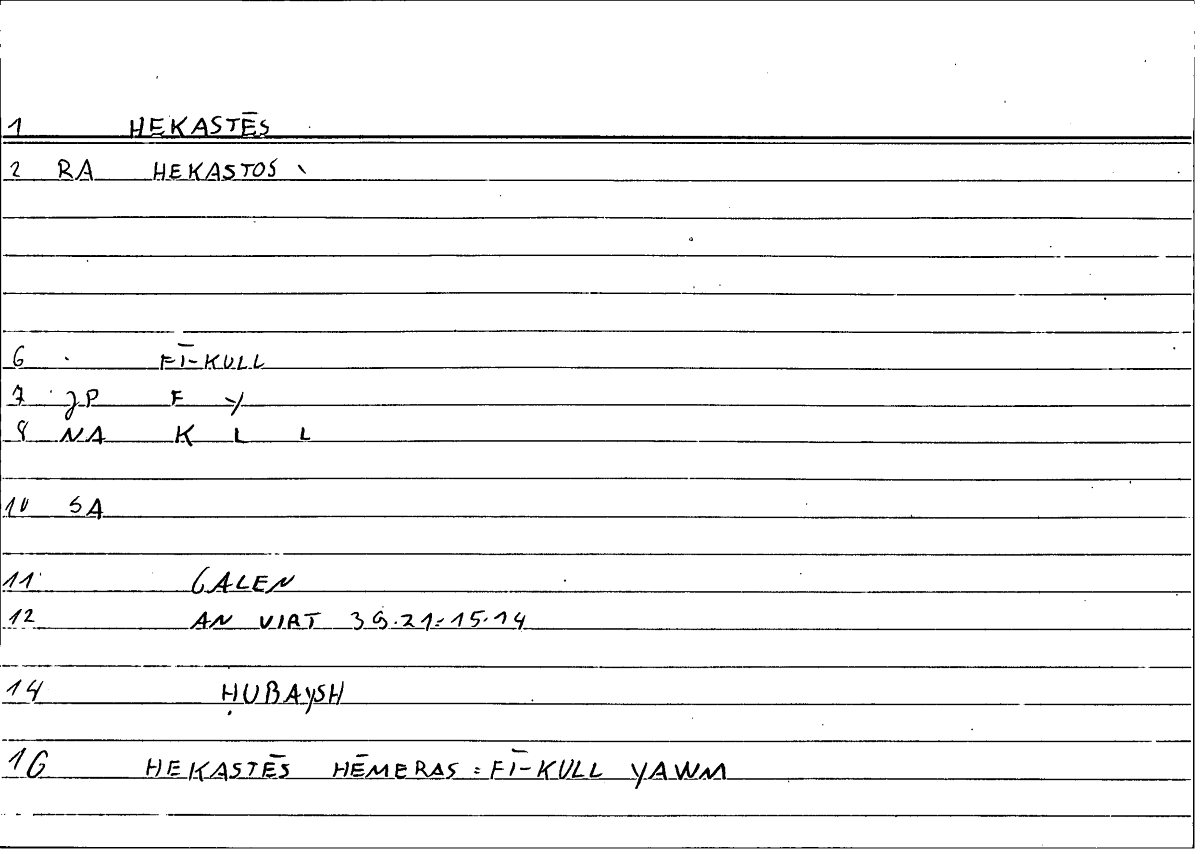 1 HEKASTĒS
2 RA HEKASTOS
6 FĪ-KULL
7 JP F Y
8 NA K L L
10 SA
11 GALEN
12 AN VIRT 36.21:15.14
14 ḤUBAYSH
16 HEKASTĒS HĒMERAS = FĪ-KULL YAWM